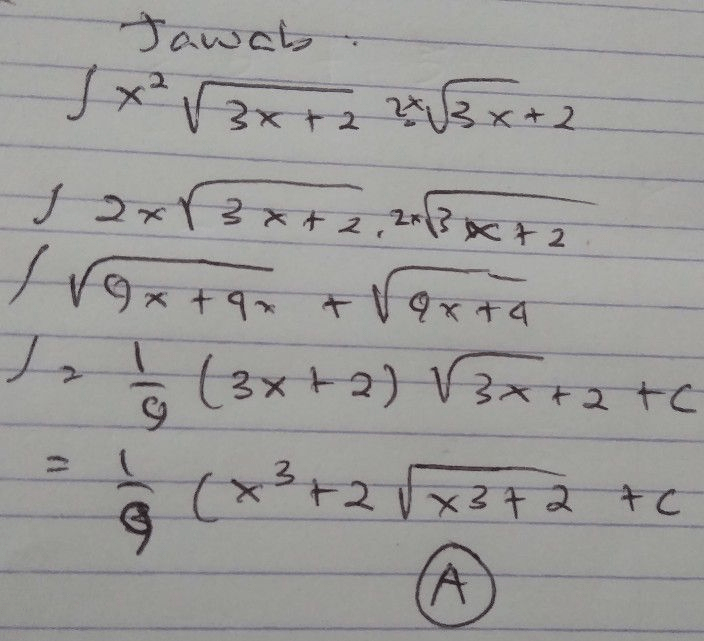 Jawab :
∫ x² √(3x + 2) 2x √(3x) + 2
∫ 2x √(3x + 2) . 2x √(3x + 2)
∫ √(9x + 9x) + √(9x + 4)
∫ = 1/9 (3x + 2) √(3x) + 2 + C
= 1/9 (x³ + 2 √(x3 + 2) + C
A